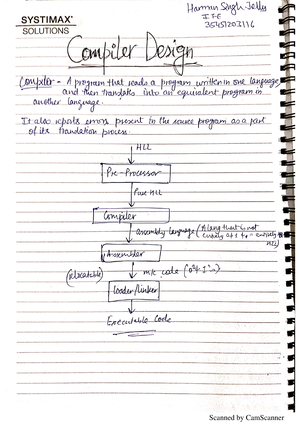 SYSTIMAX®
SOLUTIONS
Harman Singh Jolly
ITE
35451203116
Compiler Design
Compiler - A program that reads a program written in one language
and then translates into an equivalent program in
another language.
It also reports errors present to the source program as a part
of its translation process.
HLL
Pre-Processor
Pure HLL
Compiler
assembly language (A lang that is not
entirely
HLL)
Assembler
(relocatable)
m/c code (0's & 1's)
Loader/Linker
Executable Code
Scanned by CamScanner